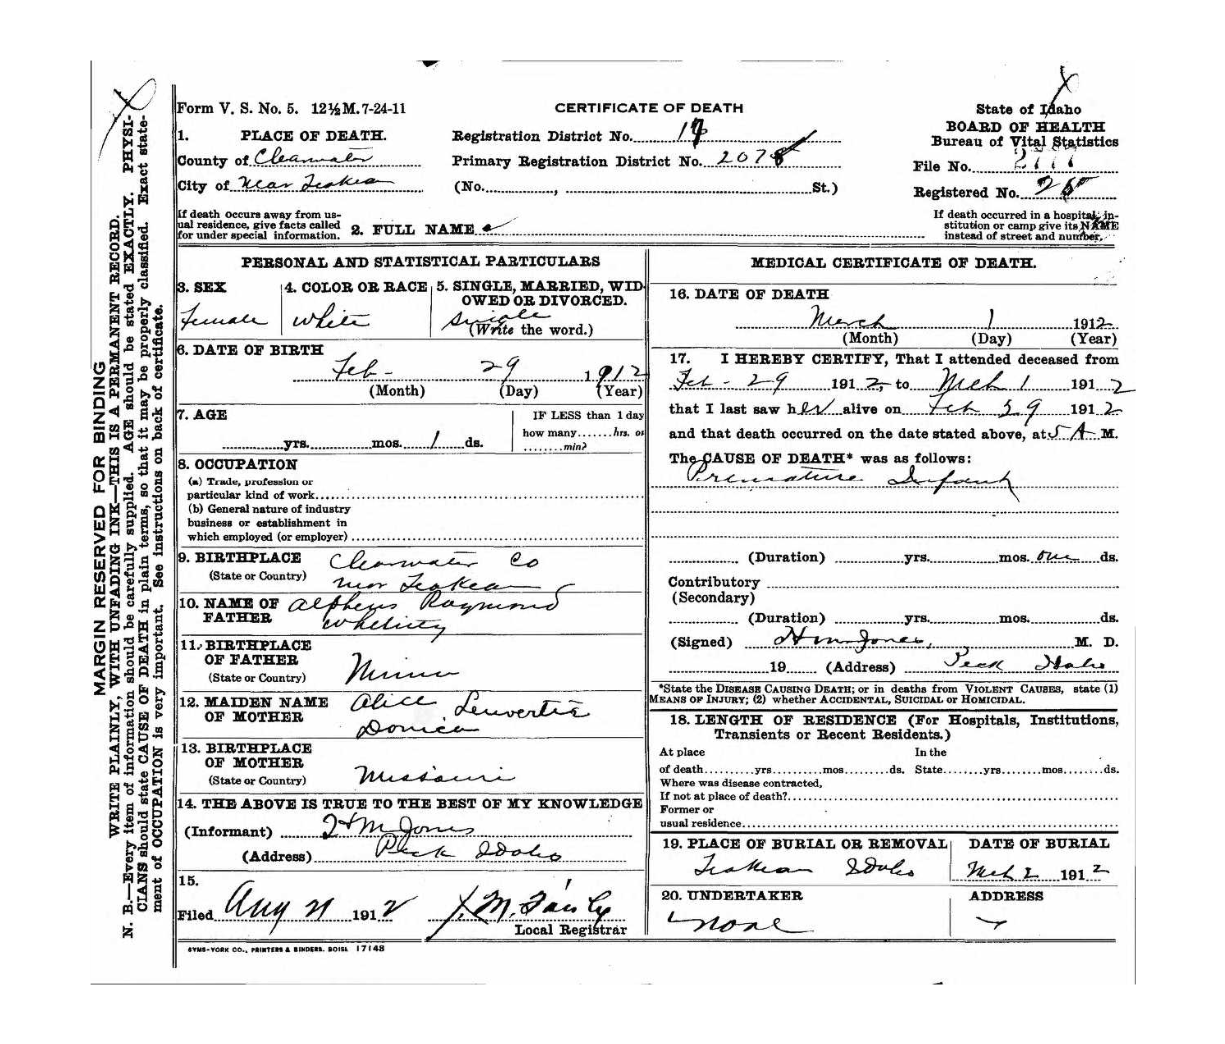 Form V. S. No. 5. 12½M. 7-24-11
CERTIFICATE OF DEATH
State of Idaho
BOARD OF HEALTH
Bureau of Vital Statistics
File No.
Registered No.
1. PLACE OF DEATH.
County of Clearwater
City of Near Teakean
Registration District No.
Primary Registration District No. 2078
(No. , St.)
If death occurs away from us-
ual residence, give facts called
for under special information.
2. FULL NAME
If death occurred in a hospital, in-
stitution or camp give its NAME
instead of street and number.
PERSONAL AND STATISTICAL PARTICULARS
3. SEX
Female
4. COLOR OR RACE
White
5. SINGLE, MARRIED, WID-
OWED OR DIVORCED.
Single
(Write the word.)
6. DATE OF BIRTH
Feb- 29 1912
(Month) (Day) (Year)
7. AGE
yrs. mos. 1 ds.
IF LESS than 1 day
how many hrs. or
min?
8. OCCUPATION
(a) Trade, profession or
particular kind of work
(b) General nature of industry
business or establishment in
which employed (or employer)
9. BIRTHPLACE Clearwater Co
(State or Country) near Teakean
10. NAME OF Alpheus Raymond
FATHER
11. BIRTHPLACE
OF FATHER
(State or Country) Minn
12. MAIDEN NAME Alice
OF MOTHER
13. BIRTHPLACE
OF MOTHER
(State or Country) Missouri
14. THE ABOVE IS TRUE TO THE BEST OF MY KNOWLEDGE
(Informant) H M Jones
(Address) Peck Idaho
15.
Filed Aug 21 1912
Local Registrar
SYMS-YORK CO., PRINTERS & BINDERS. BOISE 17148
MEDICAL CERTIFICATE OF DEATH.
16. DATE OF DEATH
March 1 1912
(Month) (Day) (Year)
17. I HEREBY CERTIFY, That I attended deceased from
Feb - 29 1912, to Mch 1 1912
that I last saw her alive on Feb 29 1912
and that death occurred on the date stated above, at 5 A M.
The CAUSE OF DEATH* was as follows:
Premature Infant
(Duration) yrs. mos. one ds.
Contributory
(Secondary)
(Duration) yrs. mos. ds.
(Signed) H M Jones, M. D.
19 (Address) Peck Idaho
*State the DISEASE CAUSING DEATH; or in deaths from VIOLENT CAUSES, state (1)
MEANS OF INJURY; (2) whether ACCIDENTAL, SUICIDAL or HOMICIDAL.
18. LENGTH OF RESIDENCE (For Hospitals, Institutions,
Transients or Recent Residents.)
At place In the
of death yrs. mos. ds. State yrs. mos. ds.
Where was disease contracted,
If not at place of death?
Former or
usual residence
19. PLACE OF BURIAL OR REMOVAL
Teakean Idaho
DATE OF BURIAL
Mch 2 1912
20. UNDERTAKER
none
ADDRESS
MARGIN RESERVED FOR BINDING
WRITE PLAINLY, WITH UNFADING INK—THIS IS A PERMANENT RECORD.
N. B.—Every item of information should be carefully supplied. AGE should be stated EXACTLY. PHYSI-
CIANS should state CAUSE OF DEATH in plain terms, so that it may be properly classified. Exact state-
ment of OCCUPATION is very important. See instructions on back of certificate.